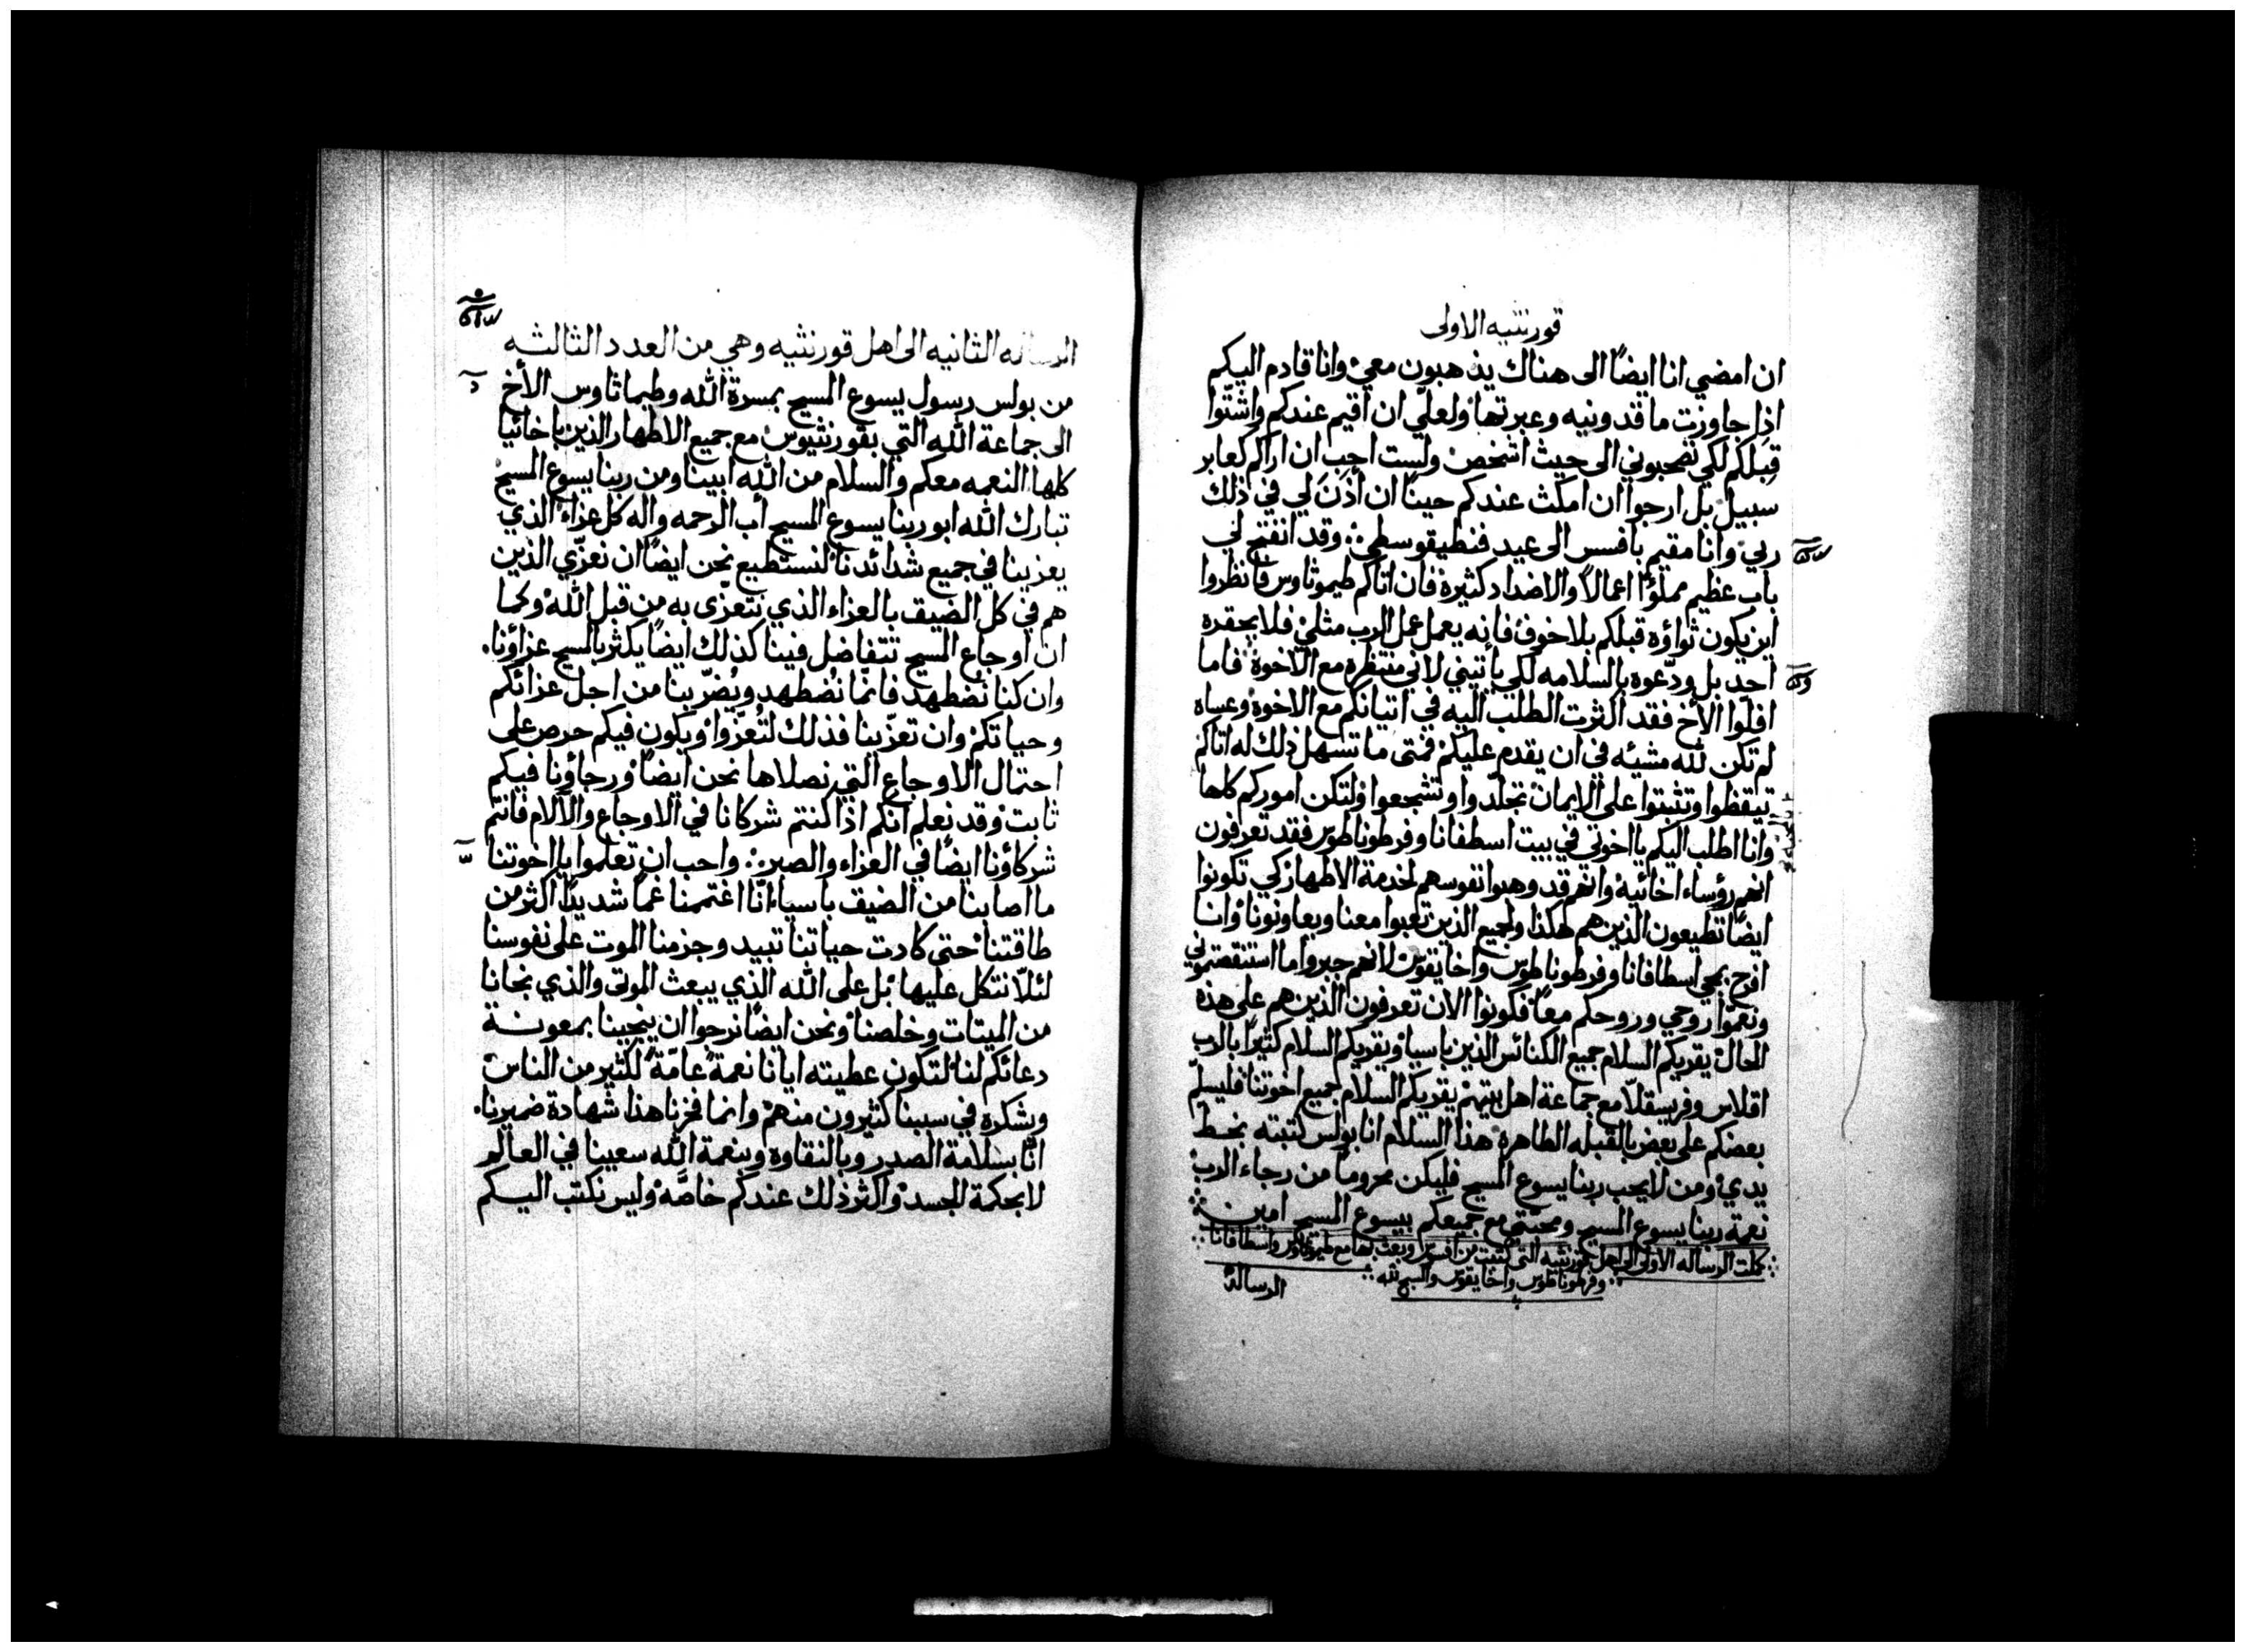 قورنثيه الاولى
ان امضي انا ايضًا الى هناك يذهبون معي وانا قادم اليكم
اذا جاوزت ماقدونيه وعبرتها ولعلّي ان اقيم عندكم واشتّوا
قبلكم لكي تصحبوني الى حيث اشخص ولست احب ان اراكم كعابر
سبيل بل ارجوا ان امكث عندكم حينًا ان أذن لي في ذلك
ربي وانا مقيم بافسس الى عيد فنطيقوسطي وقد انفتح لي
باب عظيم مملوًّا اعمالاً والاضداد كثيرة فان اتاكم طيموثاوس فانظروا
اين يكون ثواؤه قبلكم بلا خوف فانه يعمل عمل الرب مثلي فلا يحقره
احد بل ودّعوه بالسلامه لكي يأتيني لاني منتظره مع الاخوة فاما
افلّوا الأخ فقد اكثرت الطلب اليه في اتيانكم مع الاخوة وعساه
لم تكن لله مشيئه في ان يقدم عليكم فمتى ما تسهل ذلك له اتاكم
تيقظوا وتثبتوا على الايمان تجلّدوا وتشجعوا ولتكن اموركم كلها
وانا اطلب اليكم يا اخوتي في بيت اسطفانا وفرطوناطوس فقد تعرفون
انهم رؤساء اخائيه وانهم قد وهبوا نفوسهم لخدمة الاطهار كي تكونوا
ايضًا تطيعون الذين هم هكذا ولجميع الذين تعبوا معنا ويعاونونا وانا
افرح بمجي اسطافانا وفرطوناطوس واخايقوس لانهم جبروا ما استنقصتموني
ونعّموا روحي وروحكم معًا فكونوا الان تعرفون الذين هم على هذه
الحال يقريكم السلام جميع الكنائس الذين باسيا ويقريكم السلام كثيرًا بالرب
اقلاس وفريسقلّا مع جماعة اهل بيتهم يقريكم السلام جميع اخوتنا فليسلّم
بعضكم على بعض بالقبله الطاهره هذا السلام انا بولس كتبته بخط
يدي ومن لا يحب ربنا يسوع المسيح فليكن محرومًا من رجاء الرب
نعمة ربنا يسوع المسيح ومحبتي مع جميعكم بيسوع المسيح امين
كملت الرساله الاولى الى اهل قورنثيه التي كتبت من افسس وبعث بها مع طيموثاوس واسطافانا
وفرطوناطوس واخايقوس والسبح لله
الرسالة
الرساله الثانيه الى اهل قورنثيه وهي من العدد الثالثه
من بولس رسول يسوع المسيح بمسرة الله وطيماثاوس الأخ
الى جماعة الله التي بقورنثيوس مع جميع الاطهار الذين باخائيا
كلها النعمه معكم والسلام من الله ابينا ومن ربنا يسوع المسيح
تبارك الله ابو ربنا يسوع المسيح أب الرحمه واله كل عزاء الذي
يعزينا في جميع شدائدنا لنستطيع نحن ايضًا ان نعزّي الذين
هم في كل الضيق بالعزاء الذي نتعزّى به من قبل الله وكما
ان أوجاع المسيح تتفاضل فينا كذلك ايضًا يكثر بالمسيح عزاؤنا.
وان كنا نُضطهد فانمّا نُضطهد ويُضرّ بنا من اجل عزائكم
وحياتكم وان تعزّينا فذلك لتُعزّوا ويكون فيكم حرص على
احتمال الاوجاع التي نصلاها نحن ايضًا ورجاؤنا فيكم
ثابت وقد نعلم انكم اذا كنتم شركانا في الاوجاع والآلام فانتم
شركاؤنا ايضًا في العزاء والصبر واحب ان تعلموا يا اخوتنا
ما اصابنا من الضيق باسيا انّا اغتممنا غمًا شديدًا اكثر من
طاقتنا حتي كادت حياتنا تبيد وجزمنا الموت على نفوسنا
لئلّا نتكل عليها بل على الله الذي يبعث الموتى والذي نجانا
من الميتات وخلصنا ونحن ايضًا نرجوا ان ينجينا بمعونة
دعائكم لنا لتكون عطيته ايانا نعمةً عامّةً لكثير من الناس
ويشكره في سببنا كثيرون منهم وانما فخرنا هذا شهادة ضميرنا.
انّا بسلامة الصدر وبالنقاوه وبنعمة الله سعينا في العالم
لا بحكمة الجسد واكثر ذلك عندكم خاصَّه وليس نكتب اليكم